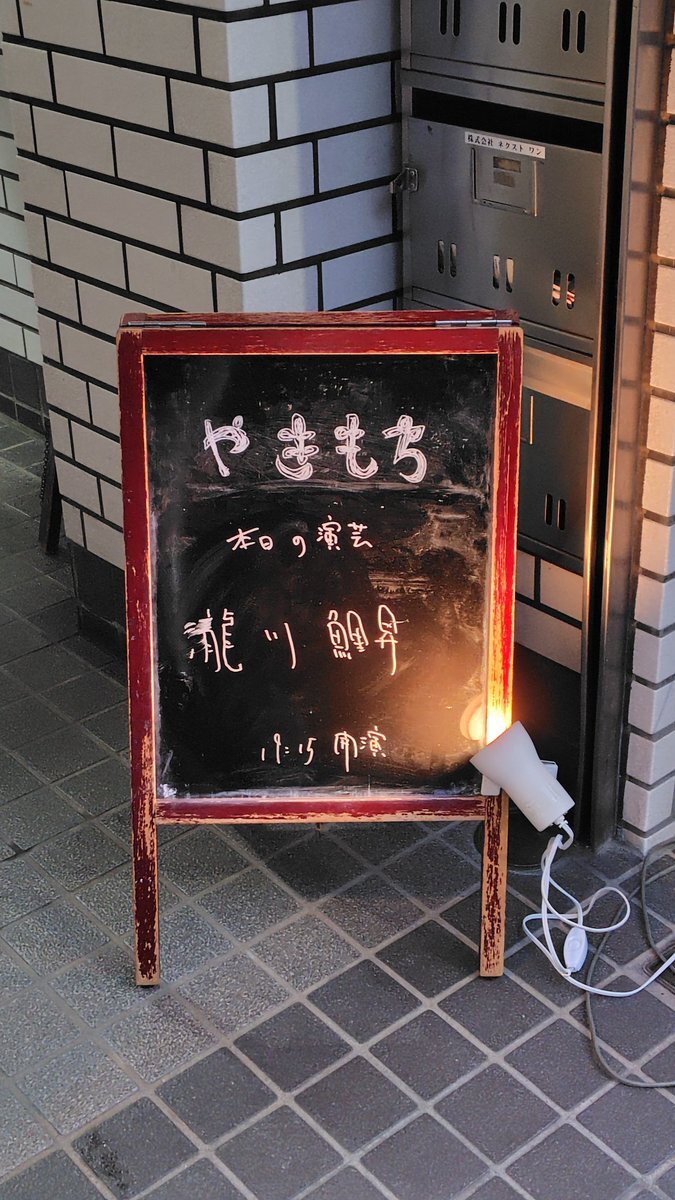 株式会社 ネクスト ワン
やきもち
本日の演芸
瀧川 鯉昇
19:15 開演